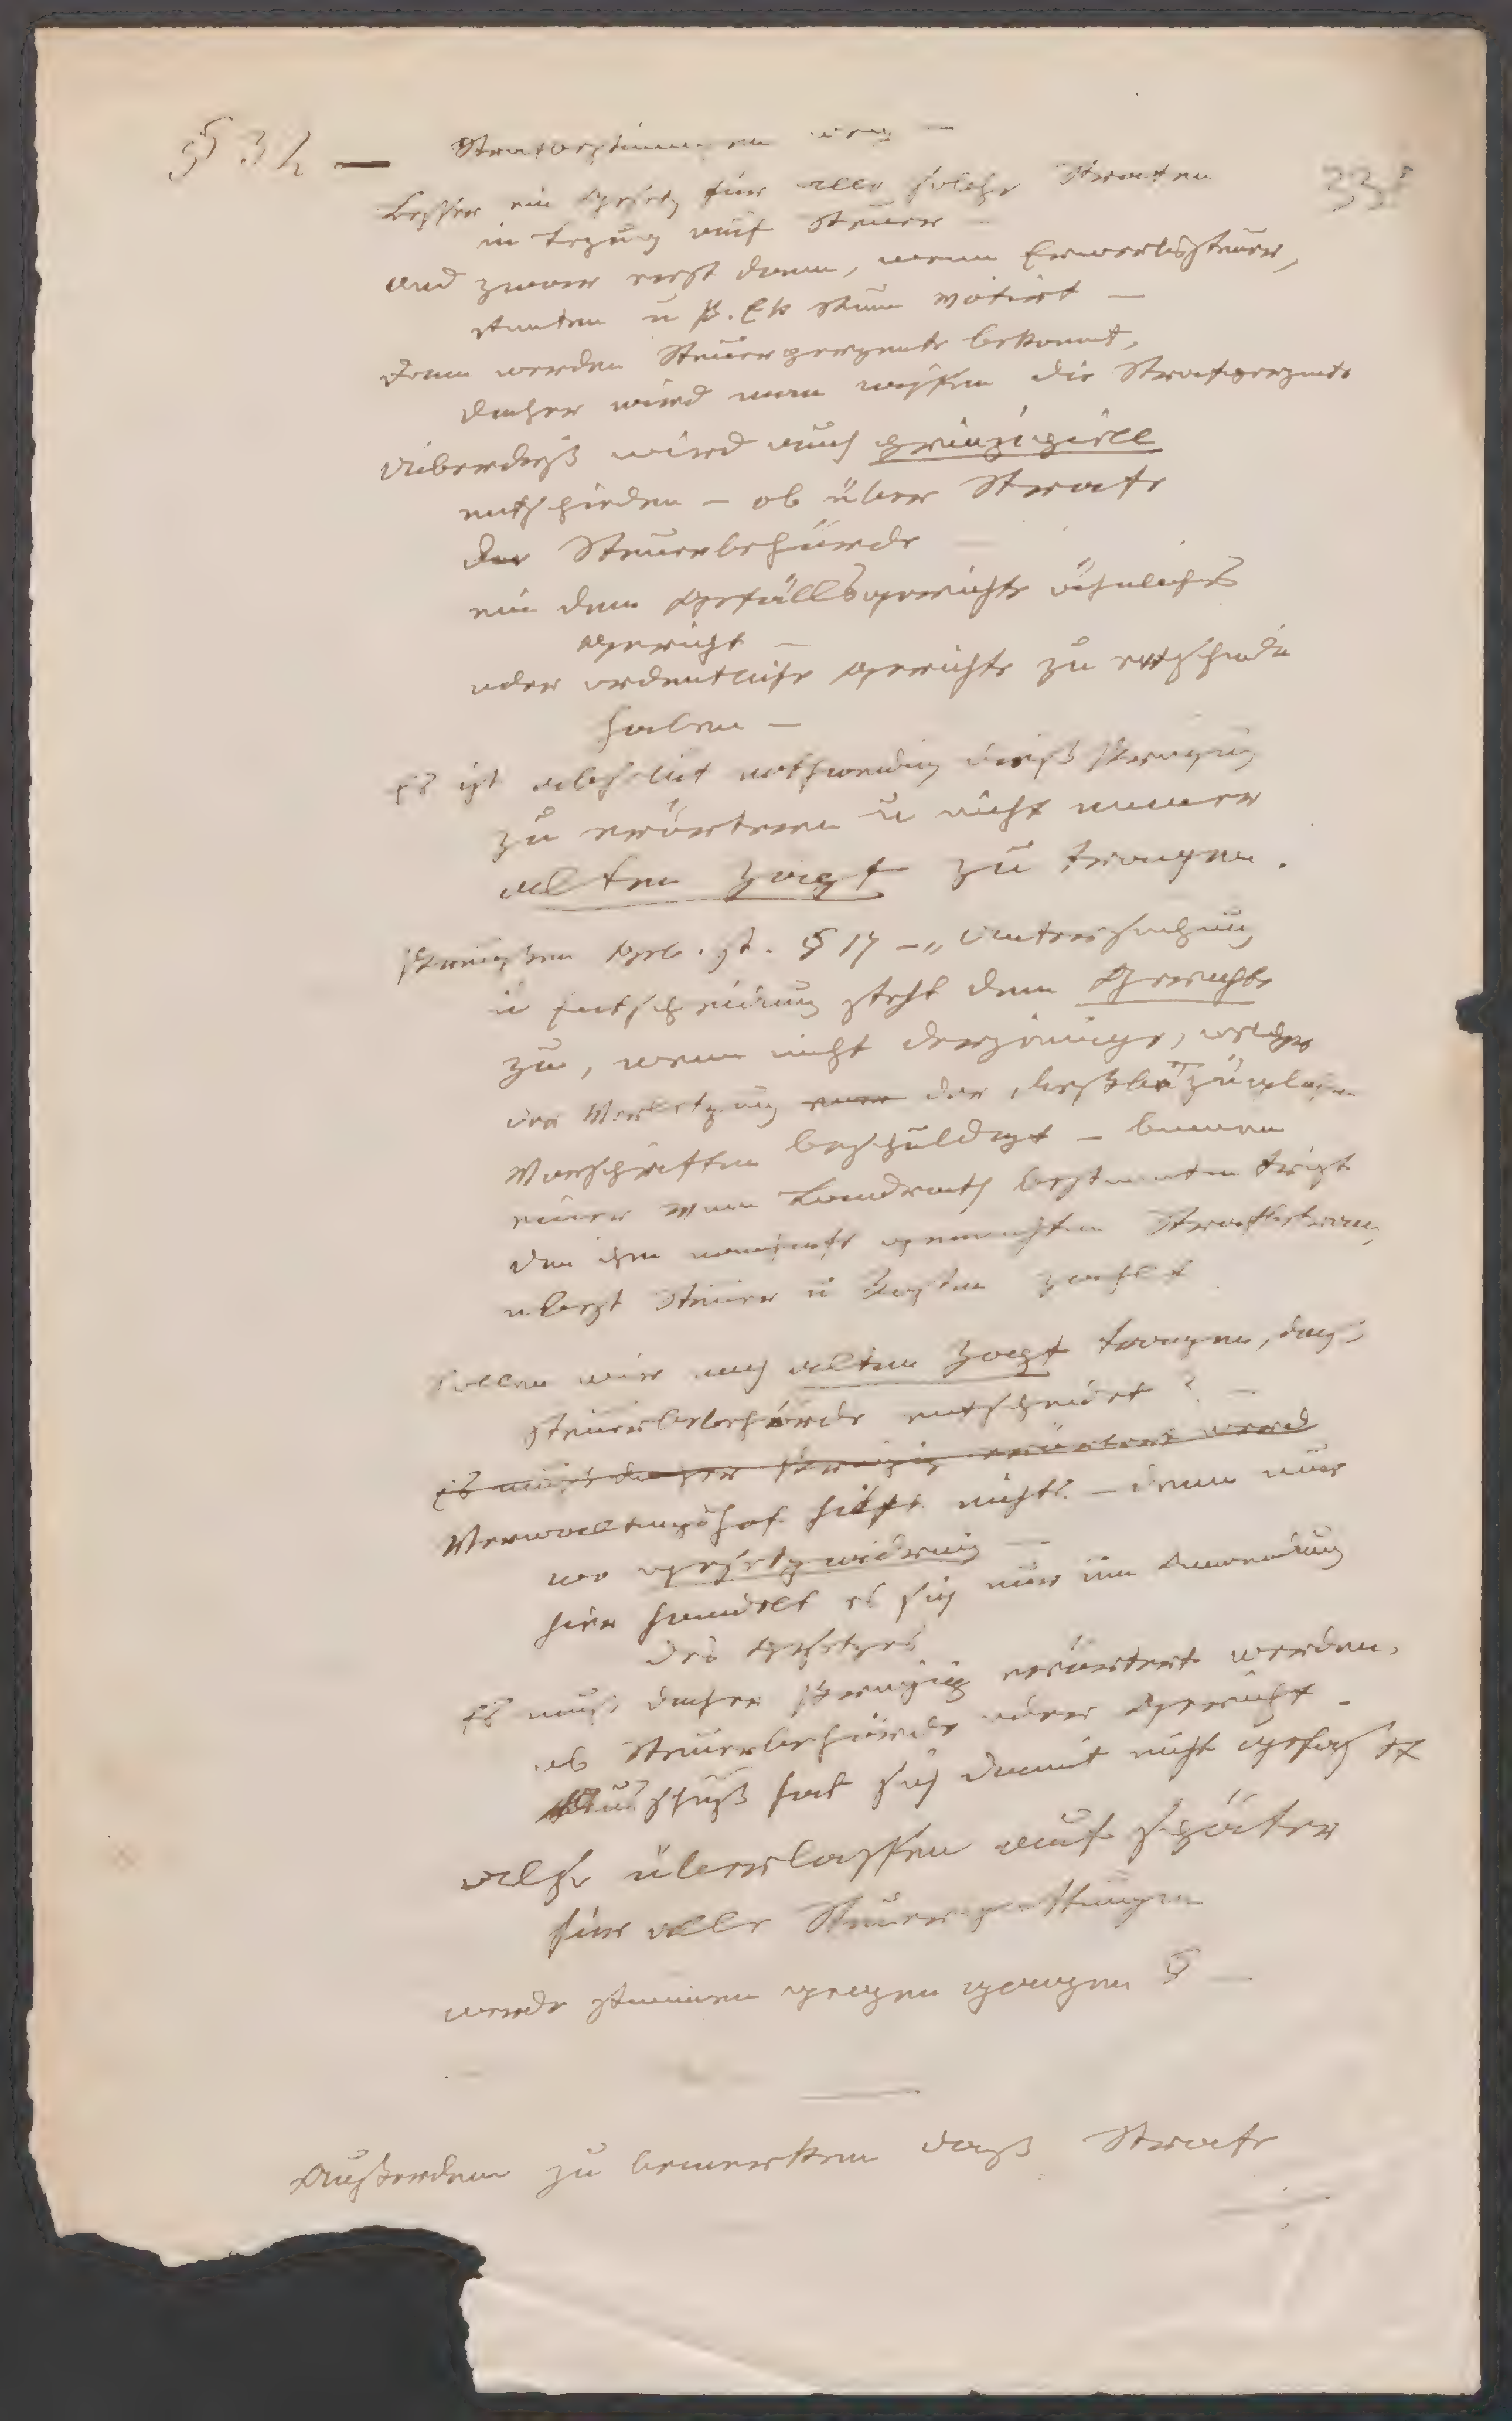 § 32 — Strafbestimmungen weg —
335
Besser ein Gesetz für alle solche Strafen
in Bezug auf Steuer —
und zwar erst dann, wenn Erwerbssteuer,
Renten u P. Ek Steuer votirt —
Dann werden Steuerperzente bekannt,
daher wird man wissen die Strafperzente
Ueberdieß wird auch prinzipiell
entschieden — ob über Strafe
der Steuerbehörde —
ein dem Gefällsgerichte ähnliches
Gericht —
oder ordentliche Gerichte zu entscheiden
haben —
Es ist absolut nothwendig dieß
zu erörtern u nicht immer
alten Zopf zu tragen.
Preußen Geb. St. § 17 — „Untersuchung
u Entscheidung steht dem Gerichte
zu, wenn nicht derjenige, welcher
der Verletzung einer der dießbezüglichen
Vorschriften beschuldigt — binnen
einer vom Landrath bestimmten Frist
den ihm gemachten Strafbetrag
nebst Steuer u Kosten zahlt
Sollen wir noch alten Zopf tragen, daß
Steuerbehörde entscheidet? —
Es muß daher erörtert werd
Verwaltungshof hilft nichts — denn nur
wo gesetzwidrig —
hier handelt es sich nur um Anwendung
des Gesetzes
Es muß daher erörtert werden,
ob Steuerbehörde oder Gericht.
Ausschuß hat sich damit nicht
also überlassen auf später
für alle Steuergattungen
werde stimmen gegen ganzen § —
Außerdem zu bemerken daß Strafe